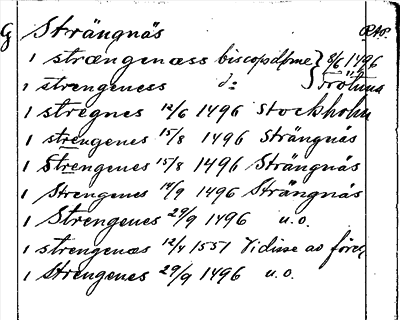 G Strängnäs RAp.
1 strængenæss biscopsdøme } 8/6 1496
1 strengeness d:o } Trötuna
1 stregnes 12/6 1496 Stockholm
1 strengenes 15/8 1496 Strängnäs
1 Strengenes 15/8 1496 Strängnäs
1 Strengenes 19/9 1496 Strängnäs
1 Strengenes 29/9 1496 u.o.
1 strengenæs 12/4 1551 Vidisse av föreg
1 Strengenes 29/9 1496 u.o.